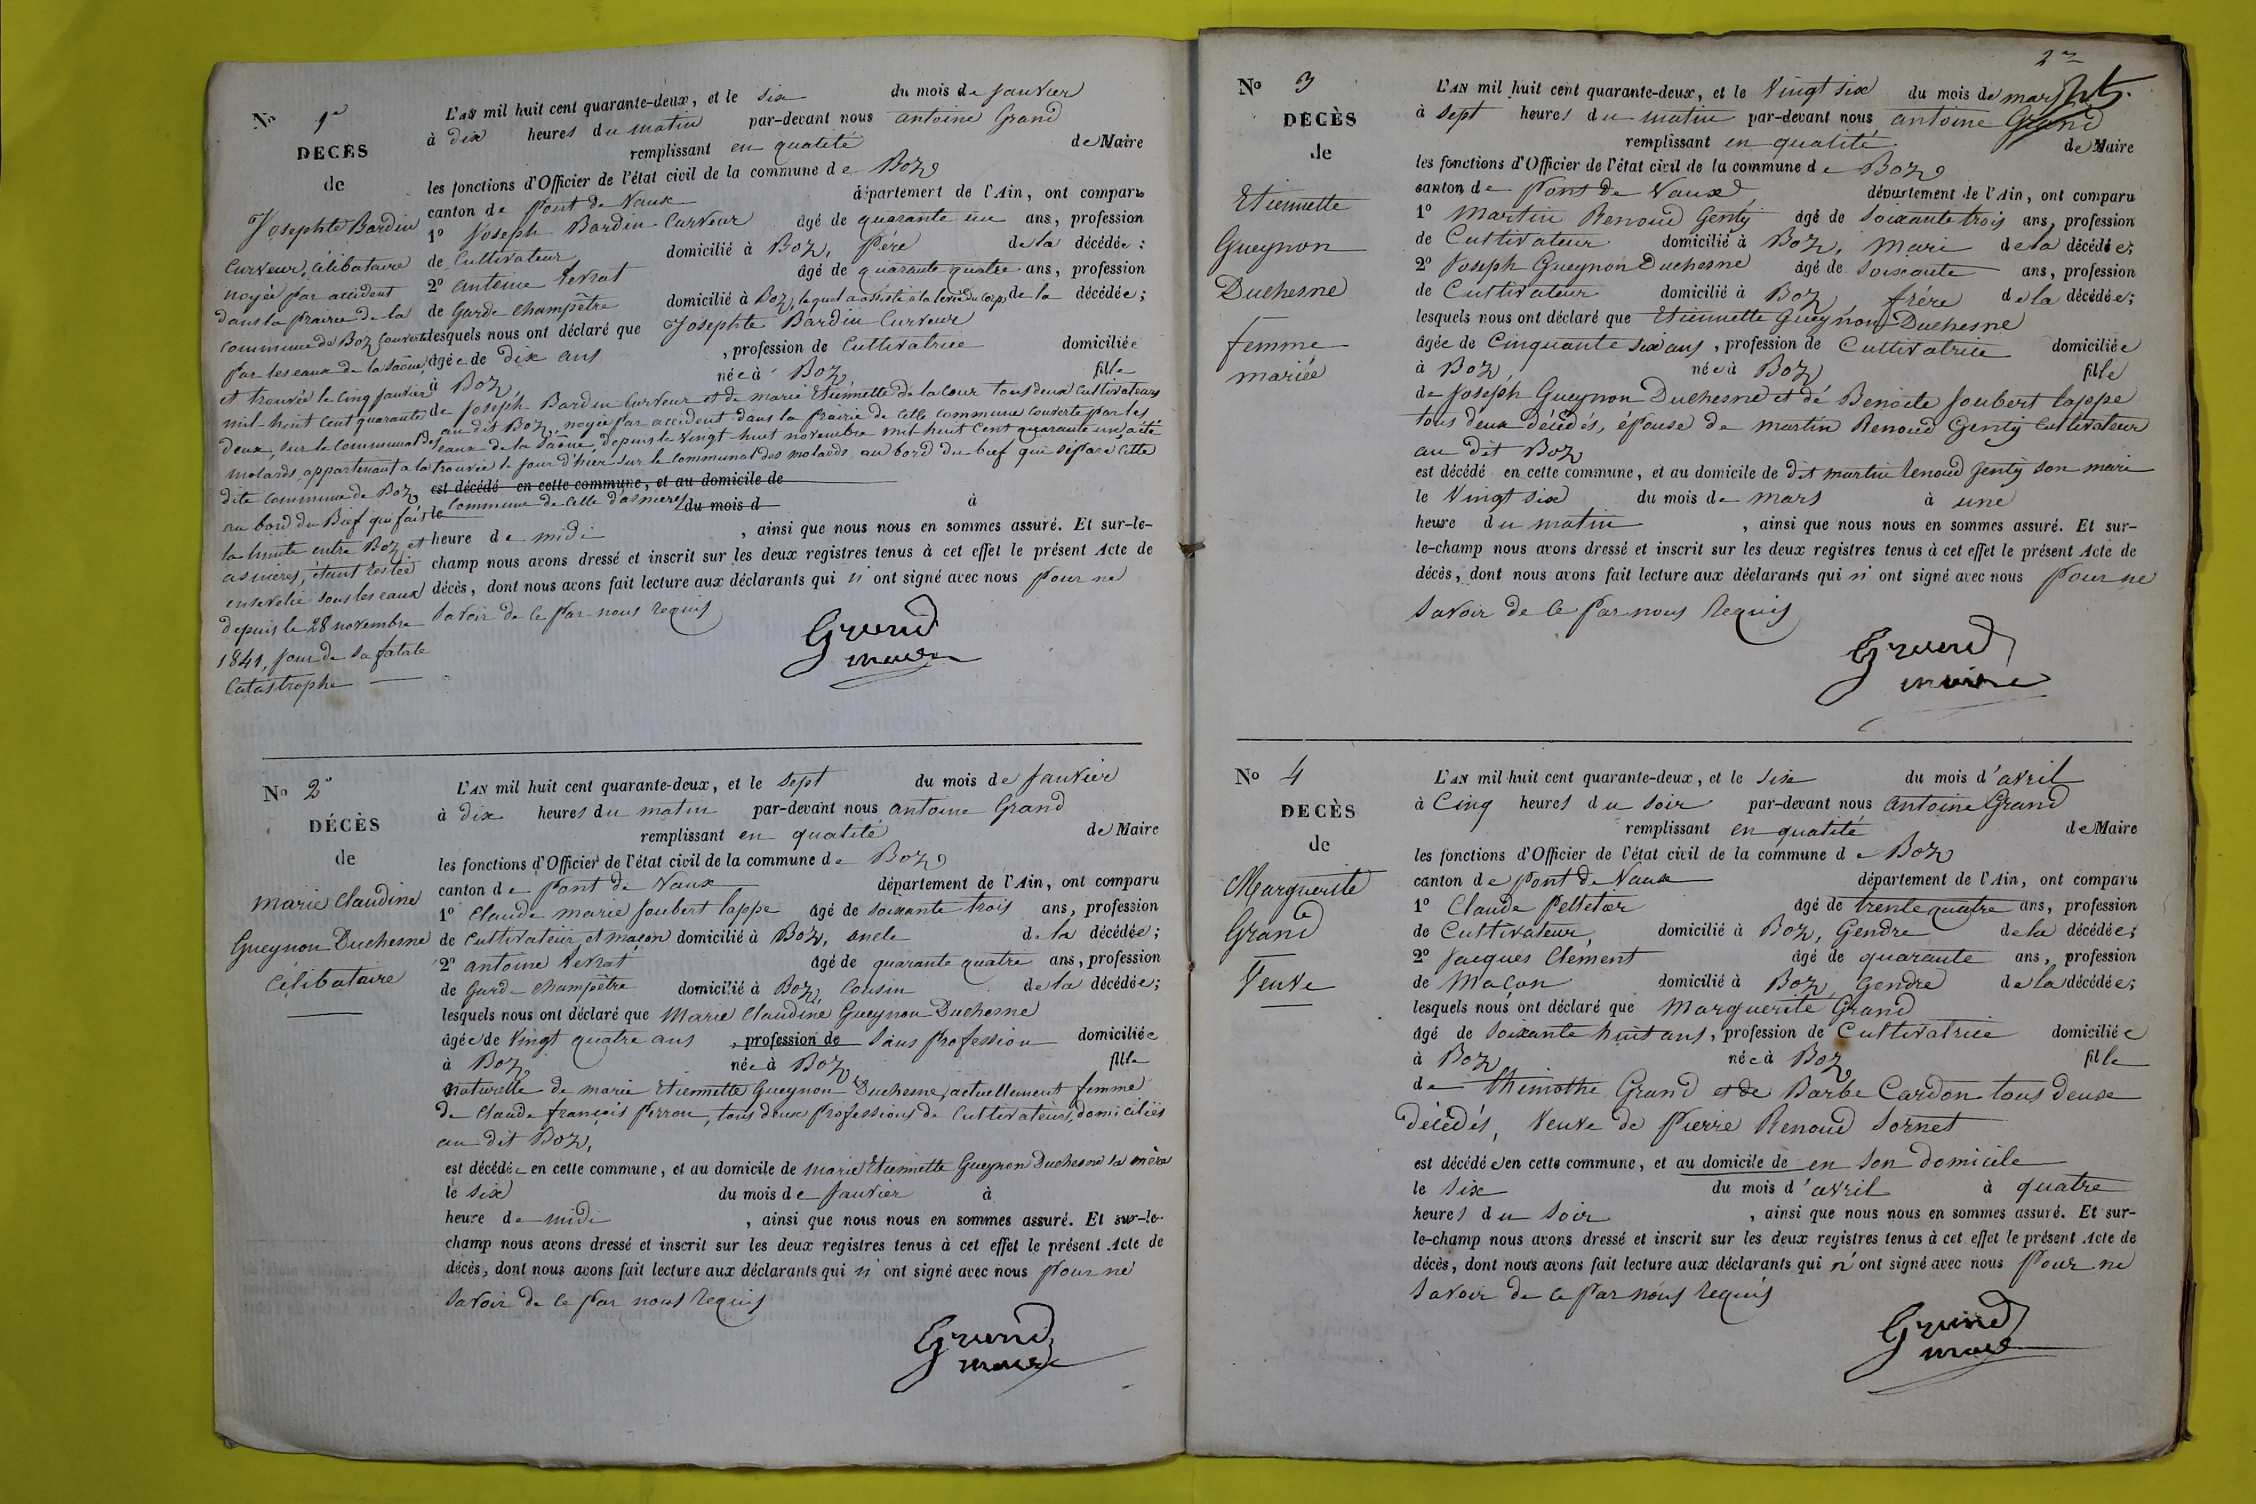 No 1er
DECÈS
de
Josephte Bardin
Curveur, célibataire
noyée par accident
dans la prairie de la
commune de Boz couverte
par les eaux de la Saône,
et trouvée le cinq janvier
mil-huit cent quarante
deux, sur le communal des
molards, appartenant a la
dite commune de Boz,
au bord du Bief qui fait
la limite entre Boz et
asnieres, étant restée
ensevelie sous les eaux
depuis le 28 novembre
1841, jour de sa fatale
Catastrophe
L'AN mil huit cent quarante-deux, et le six du mois de janvier
à dix heures du matin par-devant nous antoine Grand
remplissant en qualité de Maire
les fonctions d'Officier de l'état civil de la commune de Boz
canton de Pont de Vaux département de l'Ain, ont comparu
1º Joseph Bardin Curveur âgé de quarante un ans, profession
de Cultivateur domicilié à Boz, Père de la décédée;
2º antoine Verrat âgé de quarante quatre ans, profession
de Garde champêtre domicilié à Boz, lequel a assisté a la levée du corps de la décédée;
lesquels nous ont déclaré que Josephte Bardin Curveur
âgée de dix ans, profession de Cultivatrice domiciliée
à Boz, née à Boz, fille
de Joseph Bardin Curveur et de marie Etiennette de la cour tous deux cultivateurs
au dit Boz, noyée par accident dans la prairie de cette commune couverte par les
eaux de la Saône, depuis le vingt huit novembre mil huit cent quarante un, a été
trouvée le jour d'hier sur le communal des molards au bord du bief qui sépare cette
est décédé en cette commune, et au domicile de
le commune de celle d'asnieres du mois d à
heure de midi, ainsi que nous nous en sommes assuré. Et sur-le-
champ nous avons dressé et inscrit sur les deux registres tenus à cet effet le présent Acte de
décès, dont nous avons fait lecture aux déclarants qui n'ont signé avec nous pour ne
savoir de ce par nous requis
Grand
maire
No 2e
DÉCÈS
de
Marie Claudine
Gueynon Duchesne
Célibataire
L'AN mil huit cent quarante-deux, et le sept du mois de janvier
à dix heures du matin par-devant nous antoine Grand
remplissant en qualité de Maire
les fonctions d'Officier de l'état civil de la commune de Boz
canton de Pont de Vaux département de l'Ain, ont comparu
1º Claude marie Joubert lappe âgé de soixante trois ans, profession
de Cultivateur et maçon domicilié à Boz, oncle de la décédée;
2º antoine Verrat âgé de quarante quatre ans, profession
de Garde champêtre domicilié à Boz, Cousin de la décédée;
lesquels nous ont déclaré que Marie Claudine Gueynon Duchesne
âgée de vingt quatre ans, profession de sans profession domiciliée
à Boz, née à Boz, fille
naturelle de marie Etiennette Gueynon Duchesne, actuellement femme
de Claude françois Perron, tous deux professions de Cultivateurs, domiciliés
au dit Boz,
est décédée en cette commune, et au domicile de marie Etiennette Gueynon Duchesne sa mère
le six du mois de janvier à
heure de midi, ainsi que nous nous en sommes assuré. Et sur-le-
champ nous avons dressé et inscrit sur les deux registres tenus à cet effet le présent Acte de
décès, dont nous avons fait lecture aux déclarants qui n'ont signé avec nous pour ne
savoir de ce par nous requis
Grand
maire
No 3
DECÈS
de
Etiennette
Gueynon
Duchesne
femme
mariée
L'AN mil huit cent quarante-deux, et le vingt six du mois de mars
à sept heures du matin par-devant nous antoine Grand
remplissant en qualité de Maire
les fonctions d'Officier de l'état civil de la commune de Boz
canton de Pont de Vaux, département de l'Ain, ont comparu
1º Martin Renoud Genty âgé de soixante trois ans, profession
de Cultivateur domicilié à Boz, Mari de la décédée;
2º Joseph Gueynon Duchesne âgé de soixante ans, profession
de Cultivateur domicilié à Boz, frère de la décédée;
lesquels nous ont déclaré que Etiennette Gueynon Duchesne
âgée de Cinquante six ans, profession de Cultivatrice domiciliée
à Boz, née à Boz, fille
de Joseph Gueynon Duchesne et de Benoite Joubert lappe
tous deux décédés, épouse de martin Renoud Genty cultivateur
au dit Boz
est décédé en cette commune, et au domicile de dit martin Renoud Genty son mari
le vingt six du mois de mars à une
heure du matin, ainsi que nous nous en sommes assuré. Et sur-
le-champ nous avons dressé et inscrit sur les deux registres tenus à cet effet le présent Acte de
décès, dont nous avons fait lecture aux déclarants qui n'ont signé avec nous pour ne
savoir de ce par nous requis
Grand
maire
No 4
DECÈS
de
Marguerite
Grand
Veuve
L'AN mil huit cent quarante-deux, et le six du mois d'avril
à Cinq heures du soir par-devant nous antoine Grand
remplissant en qualité de Maire
les fonctions d'Officier de l'état civil de la commune de Boz
canton de Pont de Vaux département de l'Ain, ont comparu
1º Claude Pelletier âgé de trente quatre ans, profession
de Cultivateur, domicilié à Boz, Gendre de la décédée;
2º Jacques Clement âgé de quarante ans, profession
de Maçon domicilié à Boz, Gendre de la décédée;
lesquels nous ont déclaré que Marguerite Grand
âgé de soixante huit ans, profession de Cultivatrice domiciliée
à Boz, née à Boz, fille
de Thimothé Grand et de Barbe Cardon tous deux
décédés, veuve de Pierre Renoud Sornet
est décédée en cette commune, et au domicile de en son domicile
le six du mois d'avril à quatre
heures du soir, ainsi que nous nous en sommes assuré. Et sur-
le-champ nous avons dressé et inscrit sur les deux registres tenus à cet effet le présent Acte de
décès, dont nous avons fait lecture aux déclarants qui n'ont signé avec nous pour ne
savoir de ce par nous requis
Grand
maire